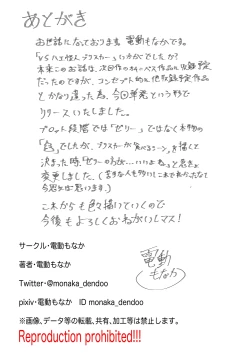 あとがき
お世話になっております。電動もなかです。
「VSハエ怪人 ブリスカー」いかがでしたか?
本来このお話は、次回作の ベス作品に収録予定
だったのですが、コンセプト的に他収録予定作品
とかなり違った為、今回単発という形で
リリースいたしました。
プロット段階では「ゼリー」ではなく本物の
でしたが、ブリスカーが食べるシーンを描くと
決まった時、「ゼリーのが…いいよね」と急きょ
変更しました。(苦手な人も多いしこれで良かったなって
今思えば思います)
これからも色々描いていくので
今後もよろしくおねがいしマス!
電動もなか
サークル・電動もなか
著者・電動もなか
Twitter・@monaka_dendoo
pixiv・電動もなか ID monaka_dendoo
※画像、データ等の転載、共有、加工等は禁止します。
Reproduction prohibited!!!